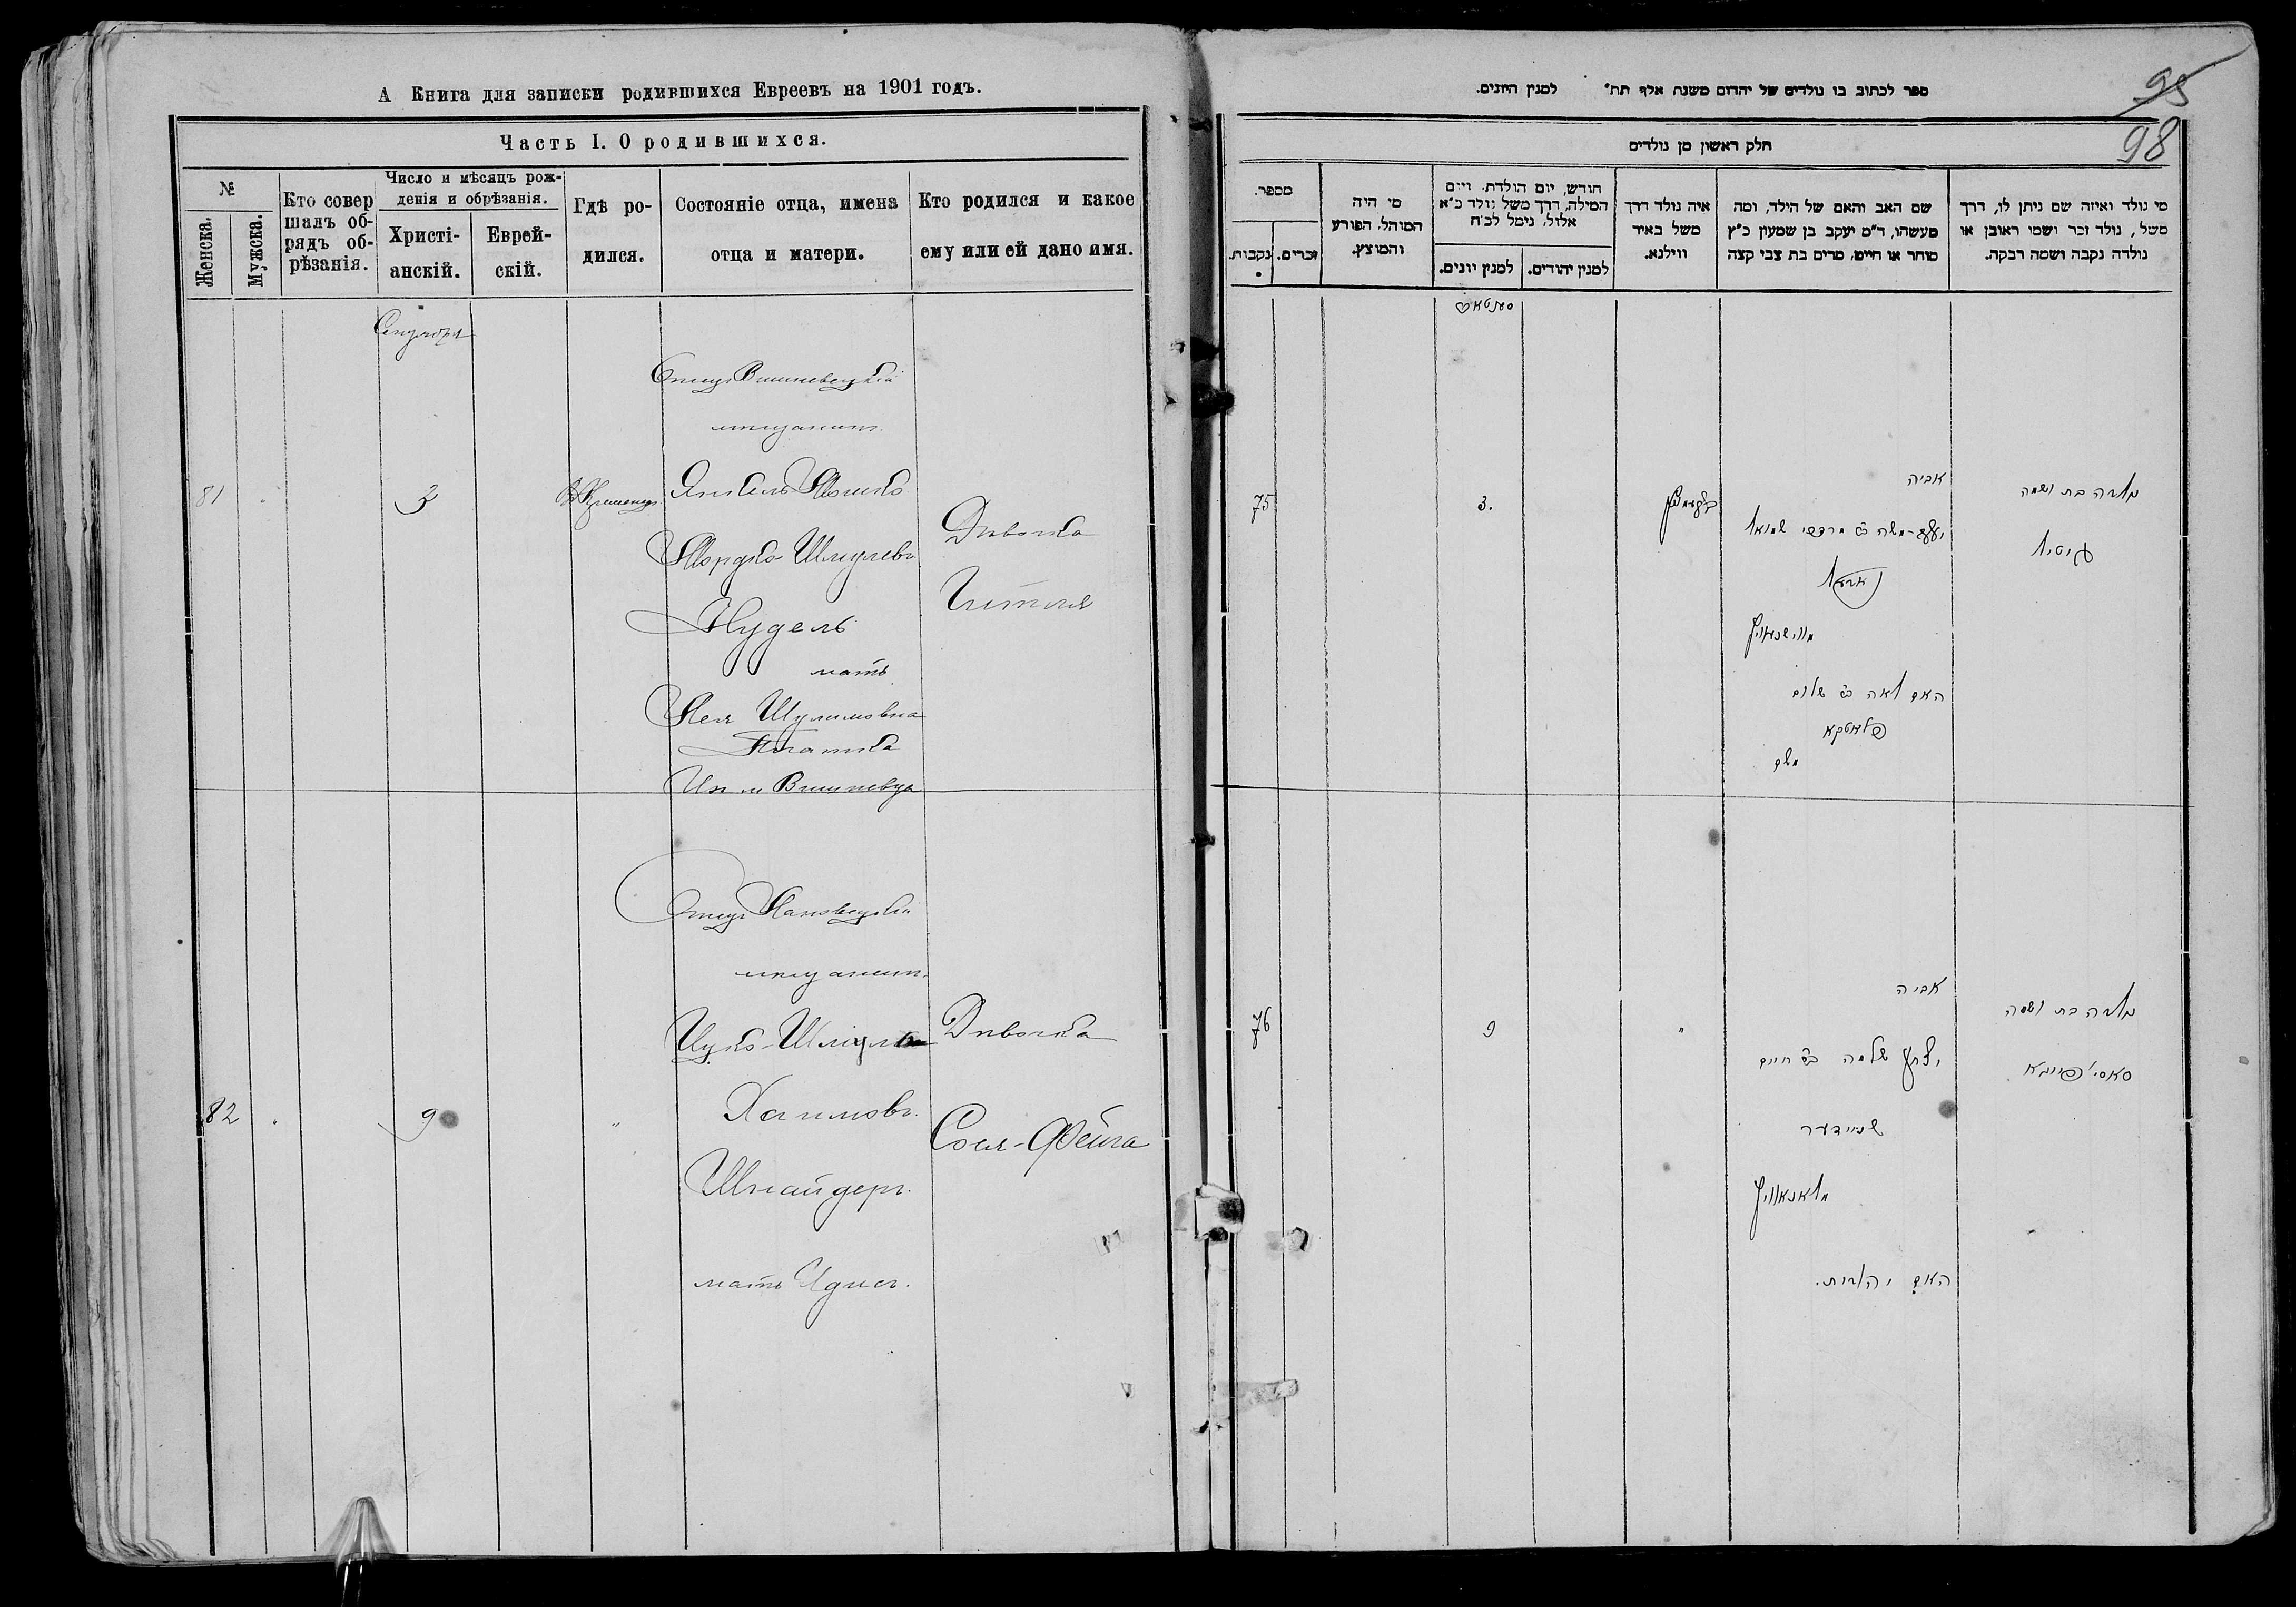 А Книга для записки родившихся Евреевъ на 1901 годъ.
Часть I. О родившихся.
№
Женска.
Мужска.
Кто совер
шалъ об-
рядъ об-
рѣзанія.
Число и мѣсяцъ рож-
денія и обрѣзанія.
Христі-
анскій.
Еврей-
скій.
Гдѣ ро-
дился.
Состояніе отца, имена
отца и матери.
Кто родился и какое
ему или ей дано имя.
Сентября
Отецъ Вишневецкій
мещанинъ
81
3
Янкель Мошко
Мордко-Шмулевъ
Нудель
мать
Лея Шулимовна
Изъ м Вишневца
Дѣвочка
Гитля
Отецъ Лановецкій
мещанинъ
82
9
"
Ицко-Шлiома
Хаимовъ
Шнайдеръ.
мать Идисъ.
Дѣвочка
Сося-Фейга
ספר לכתוב בו נולדים של יהדום משנת אלף תת״ למנין היונים.
95
98
חלק ראשון מן נולדים
מספר.
נקבות.
זכרים.
מי היה
המוהל, הפורע
והמוצץ.
חודש, יום הולדת, ויום
המילה, דרך משל נולד כ״א
אלול, נימל לכ״ח
למנין יונים.
למנין יהודים.
איה נולד דרך
משל באיר
ווילנא.
שם האב והאם של הילד, ומה
מעשהו, ד״מ יעקב בן שמעון כ״ץ
סוחר או חייט, מרים בת צבי קצה
מי נולד ואיזה שם ניתן לו, דרך
משל, נולד זכר ושמו ראובן או
נולדה נקבה ושמה רבקה.
75
3.
אביה
יעקב-משה ב״ר מרדכי שמואל
מווישנאוויץ
האם לאה ב״ר שלום
פלאטקא
משם
נולדה בת ושמה
גיטיל
76
9
"
אביה
יצחק שלמה ב״ר חיים
שניידער
מלאנאוויץ
האם יהודית.
נולדה בת ושמה
סאסי' פייגא